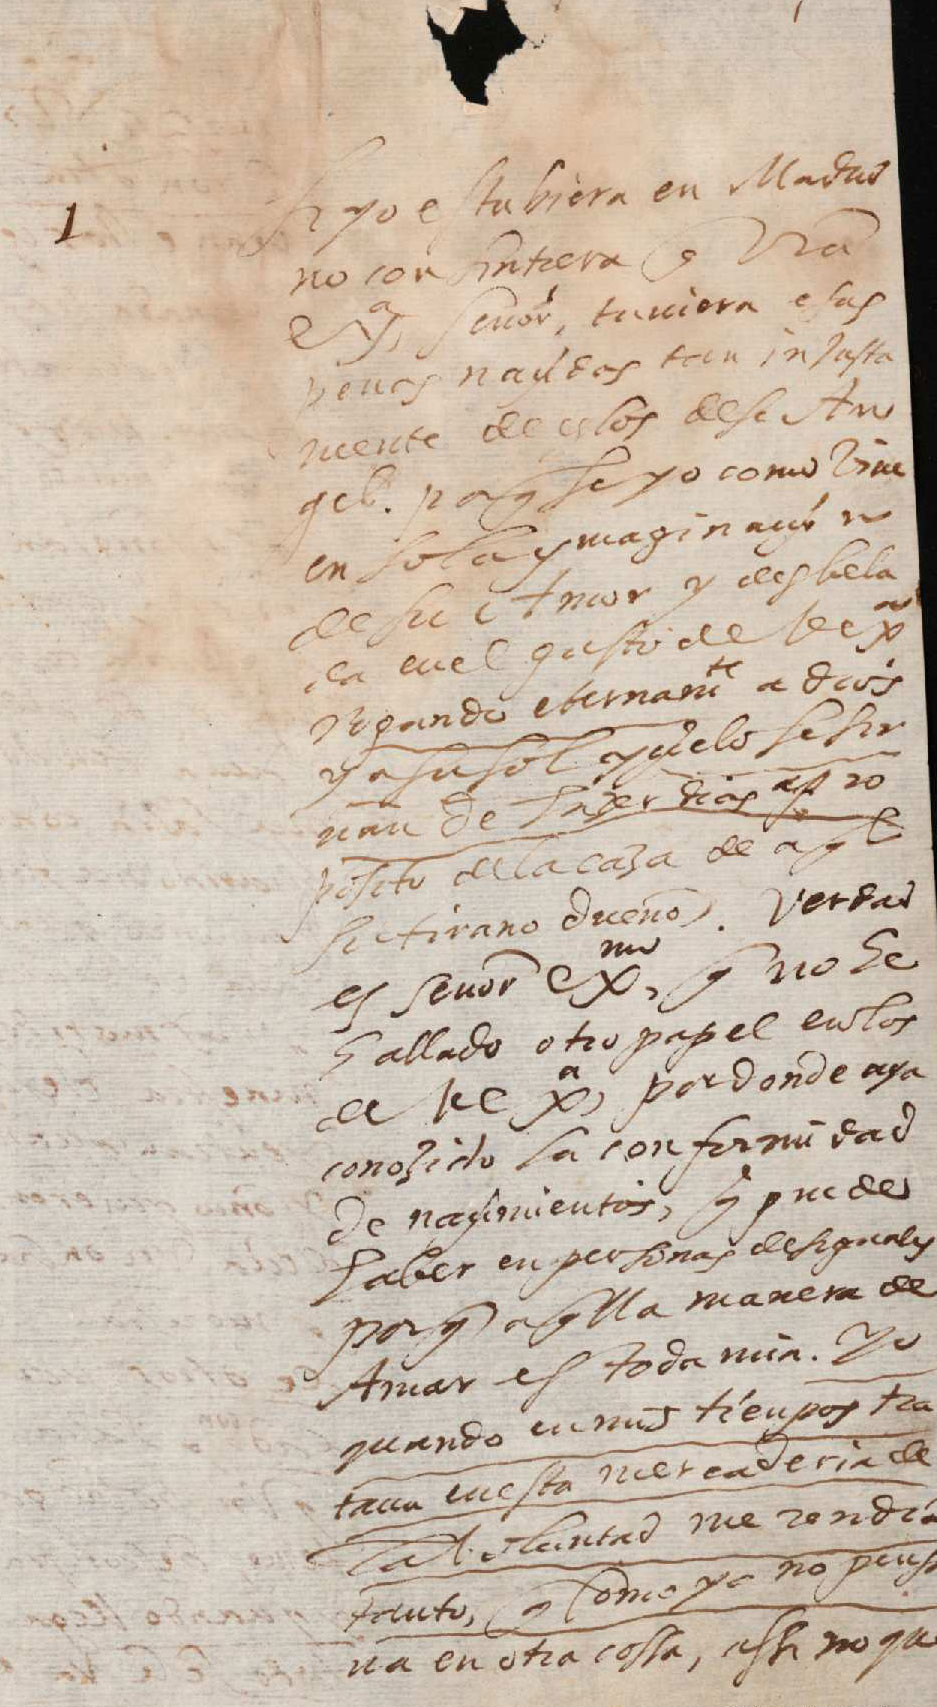 1
Si yo estubiera en Madrid
no consintiera q Vra
exª, señor, tuviera esas
penas naçidas tan injusta
mente de çelos dese An
gel. porq se yo como vive
en sola ymaginaçió
de su Amor y desbela
da en el gusto de V exª
rogando eternamte a dios
y a su sol y çielo se sir
van de traer dias a pro
posito de la casa de aql
su tirano dueño. Verdad
es señor exmo, q no he
hallado otro papel en los
de V exª, por donde aya
conozido la conformidad
de naçimientos, q puede
haber en personas desiguales
porq aqlla manera de
Amar es toda mia. Yo
quando en mis tienpos tra
tava en esta mercaderia de
la voluntad me rendia
tanto, q como yo no pensa
va en otra cossa, assi no que